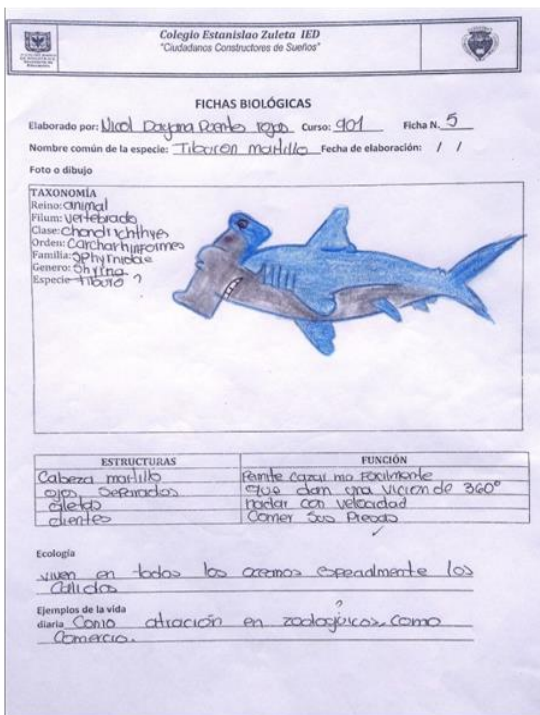 Colegio Estanislao Zuleta IED
"Ciudadanos Constructores de Sueños"
FICHAS BIOLÓGICAS
Elaborado por: Nicol Dayana Puentes rojas Curso: 901 Ficha N. 5
Nombre común de la especie: Tiburon martillo Fecha de elaboración: / /
Foto o dibujo
TAXONOMÍA
Reino: animal
Filum: vertebrado
Clase: chondrichthyes
Orden: Carcharhiniformes
Familia: Sphyrnidae
Genero: Shyrna
Especie tiburo ?
ESTRUCTURAS FUNCIÓN
Cabeza martillo Permite cazar mas Facilmente
ojos Separados que dan una vicion de 360°
aletas nadar con velocidad
dientes Comer Sus Presas
Ecología
viven en todos los oceanos especialmente los
Calidos
Ejemplos de la vida
diaria Como atracion en zoologicos, como ?
Comercio.